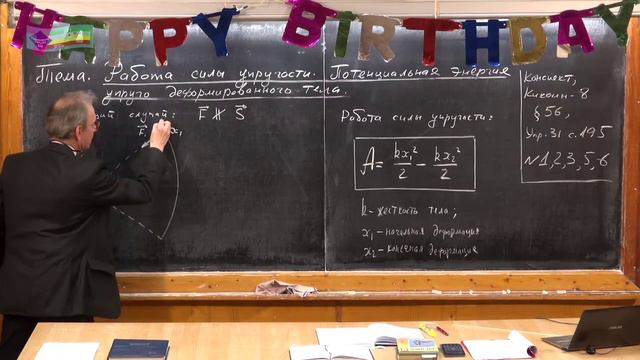 HAPPY BIRTHDAY
Тема. Работа силы упругости. Потенциальная энергия
упруго деформированного тела.
случай: F⃗ ∦ S⃗
F⃗ x₁
Работа силы упругости:
A = kx₁²/2 - kx₂²/2
k - жесткость тела;
x₁ - начальная деформация
x₂ - конечная деформация
Конспект,
Кикоин-8
§ 56,
Упр. 31 с. 195
№ 1, 2, 3, 5, 6